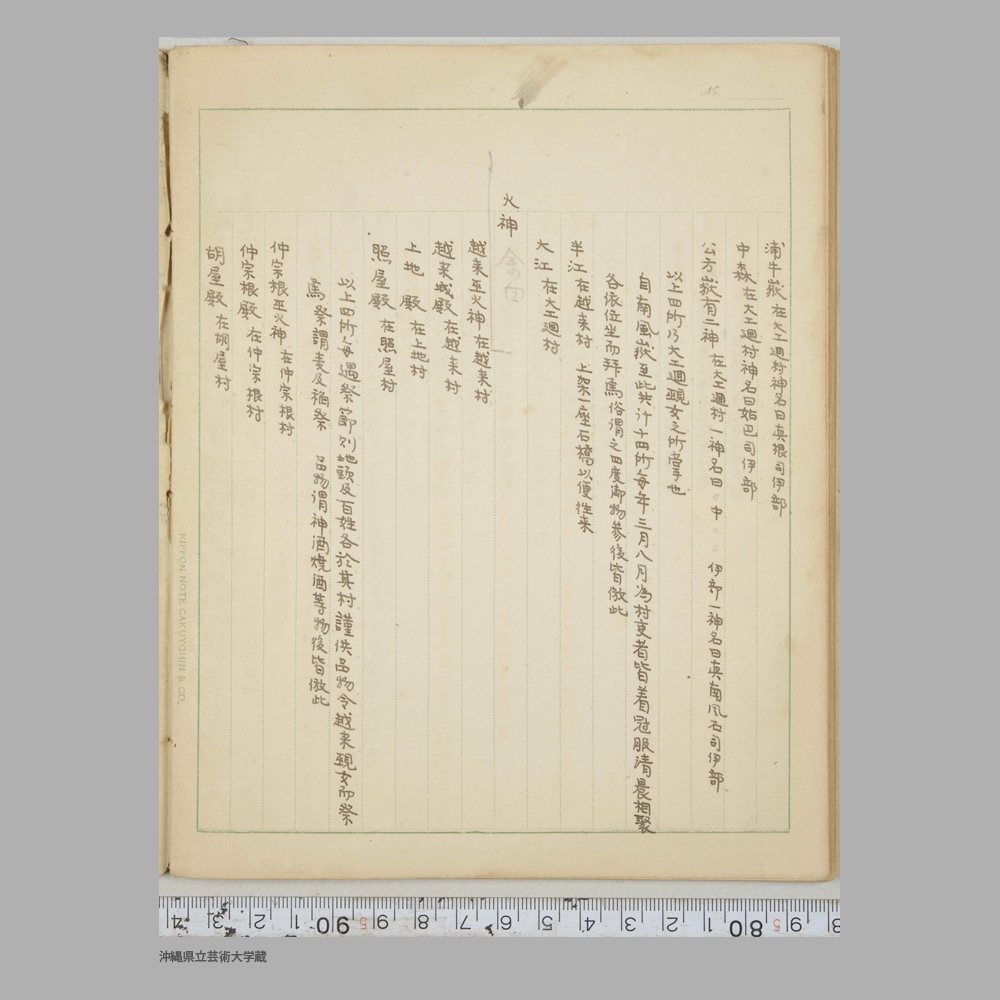 浦牛嶽 在大工𢌞村神名曰真根司伊部
中森 在大工𢌞村神名曰姑巴司伊部
公方嶽有二神 在大工𢌞村一神名曰○中○○伊部一神名曰真南風石司伊部
以上四所乃大工𢌞覡女之所掌也
自南風嶽至此共計十四所毎年三月八月為村吏者皆着冠服清晨相聚
各依位坐而拜焉俗謂之四度御物參後皆倣此
半江 在越来村 上架一座石橋以便往来
大江 在大工𢌞村
火神
越来巫火神 在越来村
越来城殿 在越来村
上地殿 在上地村
照屋殿 在照屋村
以上四所毎遇祭節則地頭及百姓各於其村謹供品物令越来覡女而祭
焉 祭謂麦及稲祭 品物謂神酒焼酒等物後皆倣此
仲宗根巫火神 在仲宗根村
仲宗根殿 在仲宗根村
胡屋殿 在胡屋村
No.
NIPPON NOTE GAKUYOHIN & CO.
4 3 2 1 90 5 8 7 6 5 4 3 2 1 80 5 9 8
沖縄県立芸術大学蔵